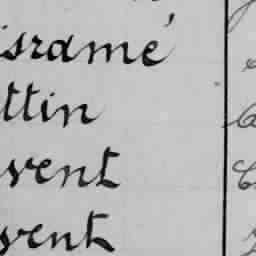 isramé
ttin
vent
vent